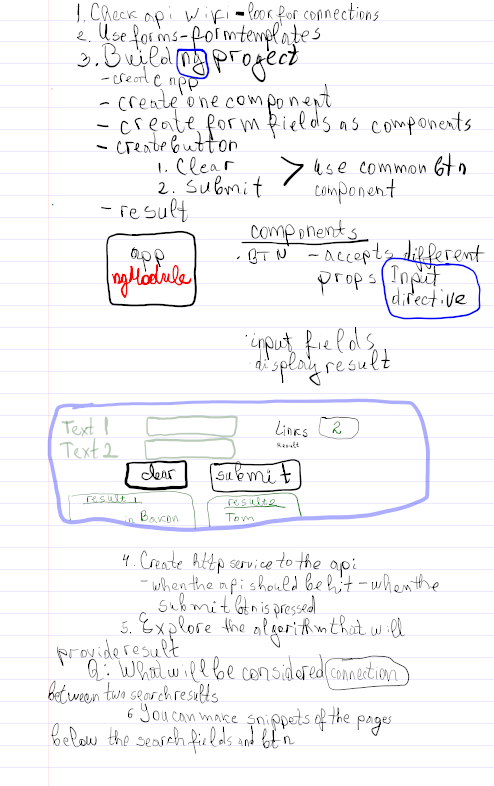 1. Check api wiki - look for connections
2. Use forms - form templates
3. Build ng project
- create app
- create one component
- create form fields as components
- create button
1. Clear
2. Submit > use common btn component
- result
app
ngModule
components
. BTN - accepts different props Input directive
. input fields
. display result
Text 1
Text 2
Links 2
Result
clear submit
result 1 result 2
n Bacon Tom
4. Create http service to the api
- when the api should be hit - when the
submit btn is pressed
5. Explore the algorithm that will
provide result
Q: What will be considered connection
between two search results
6 You can make snippets of the pages
below the search fields and btn